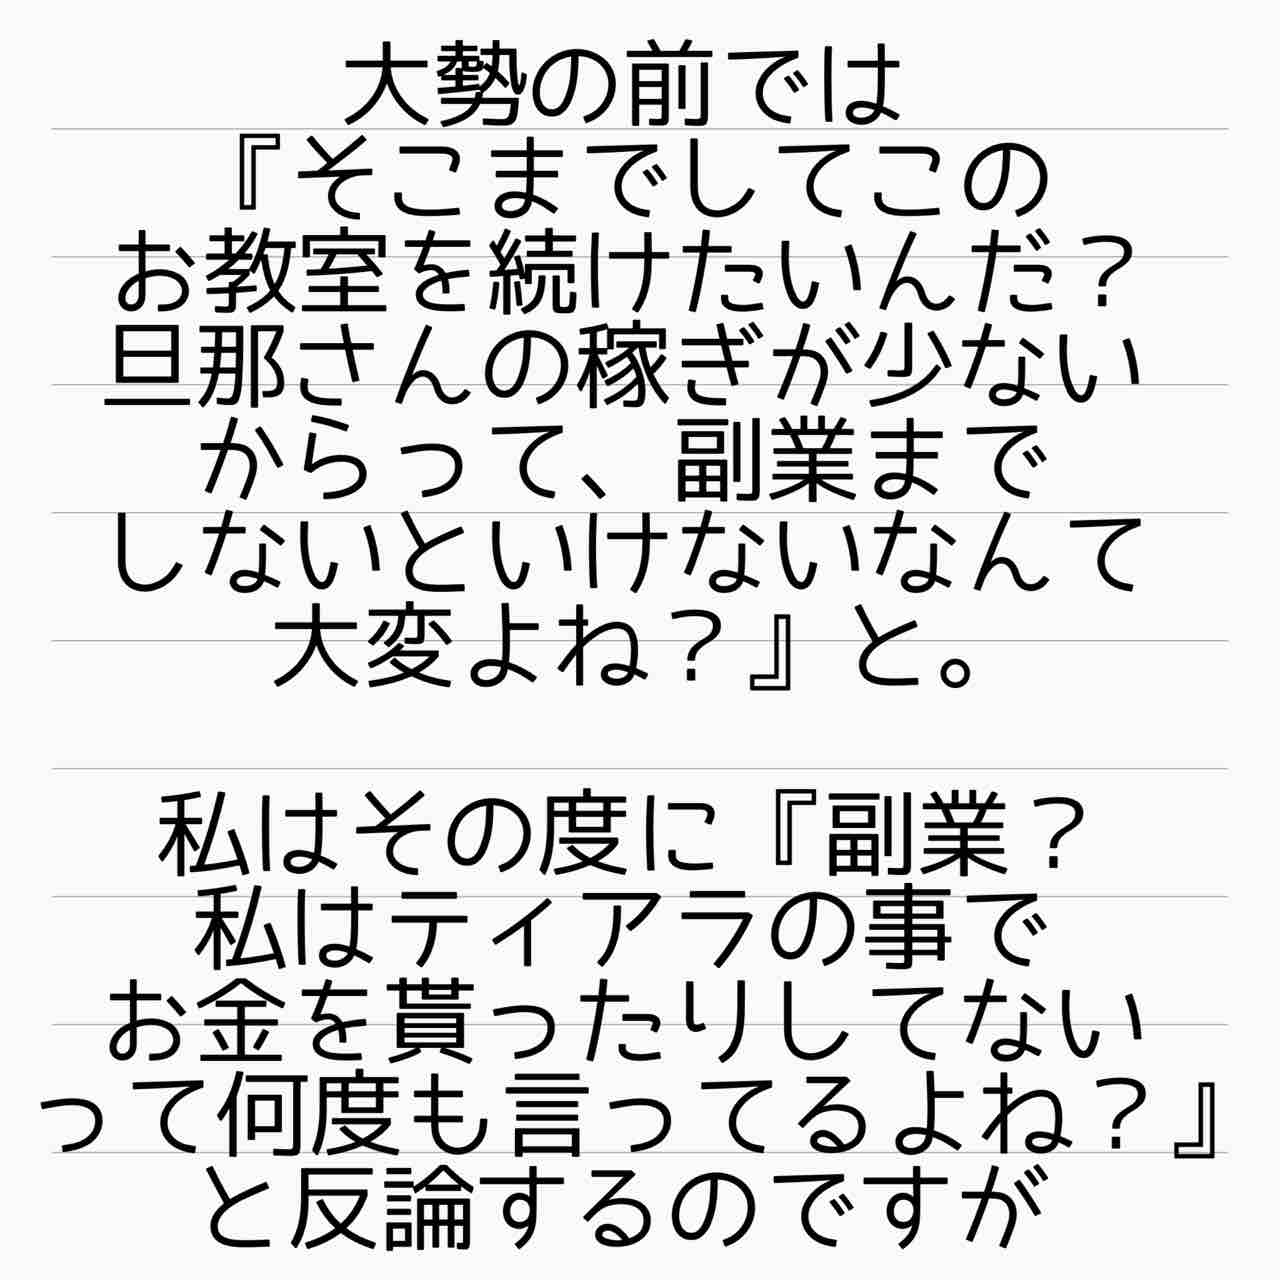 大勢の前では
『そこまでしてこの
お教室を続けたいんだ？
旦那さんの稼ぎが少ない
からって、副業まで
しないといけないなんて
大変よね？』と。
私はその度に『副業？
私はティアラの事で
お金を貰ったりしてない
って何度も言ってるよね？』
と反論するのですが